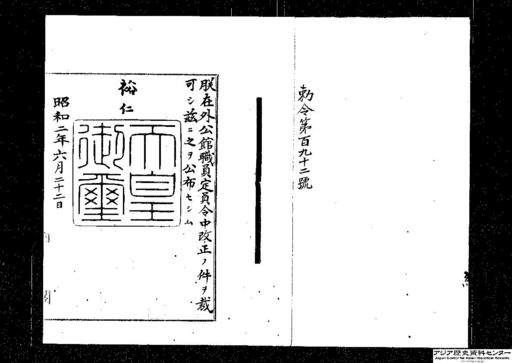 勅令第百九十二號
朕在外公館職員定員令中改正ノ件ヲ裁
可シ茲ニ之ヲ公布セシム
裕仁
天皇
御璽
昭和二年六月二十二日
アジア歴史資料センター
Japan Center for Asian Historical Records